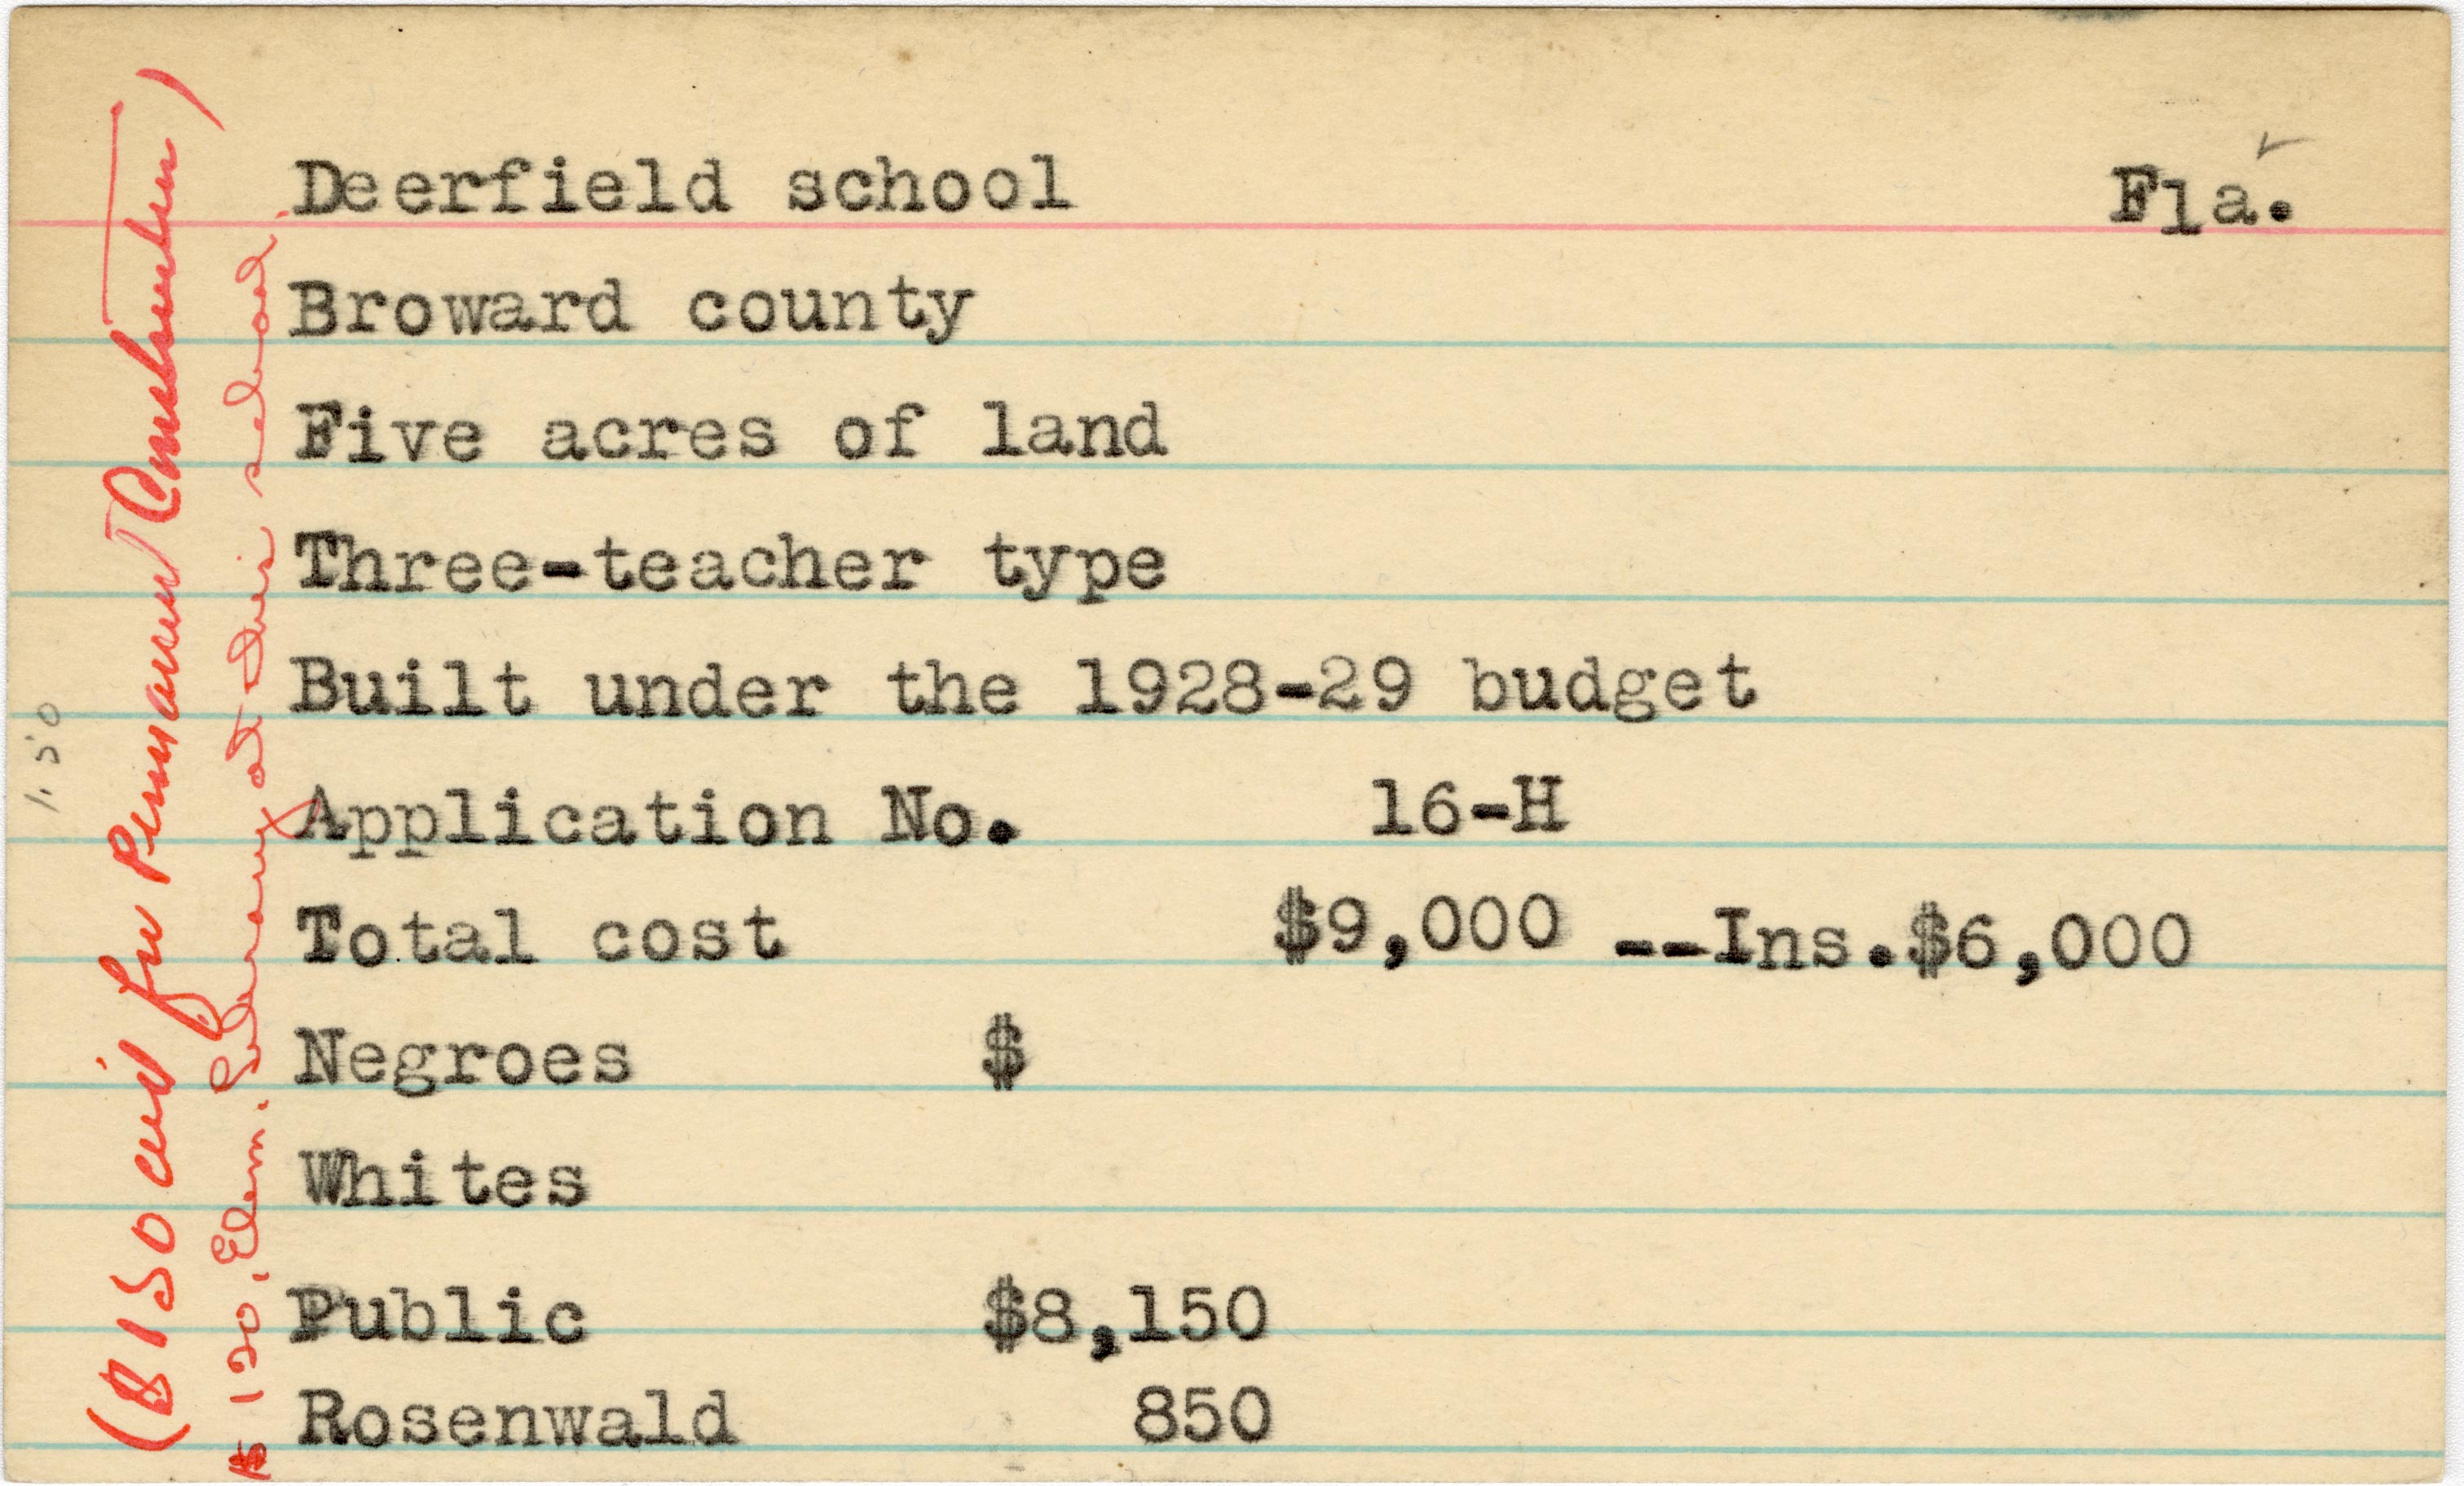 Deerfield school Fla.
Broward county
Five acres of land
Three-teacher type
Built under the 1928-29 budget
Application No. 16-H
Total cost $9,000 --Ins.$6,000
Negroes $
Whites
Public $8,150
Rosenwald 850
($150 aid for Permanent Construction)
$120. Elem. Library at this school.
1.50